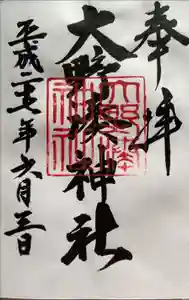 奉拝
大野湊神社
平成二七年六月三日